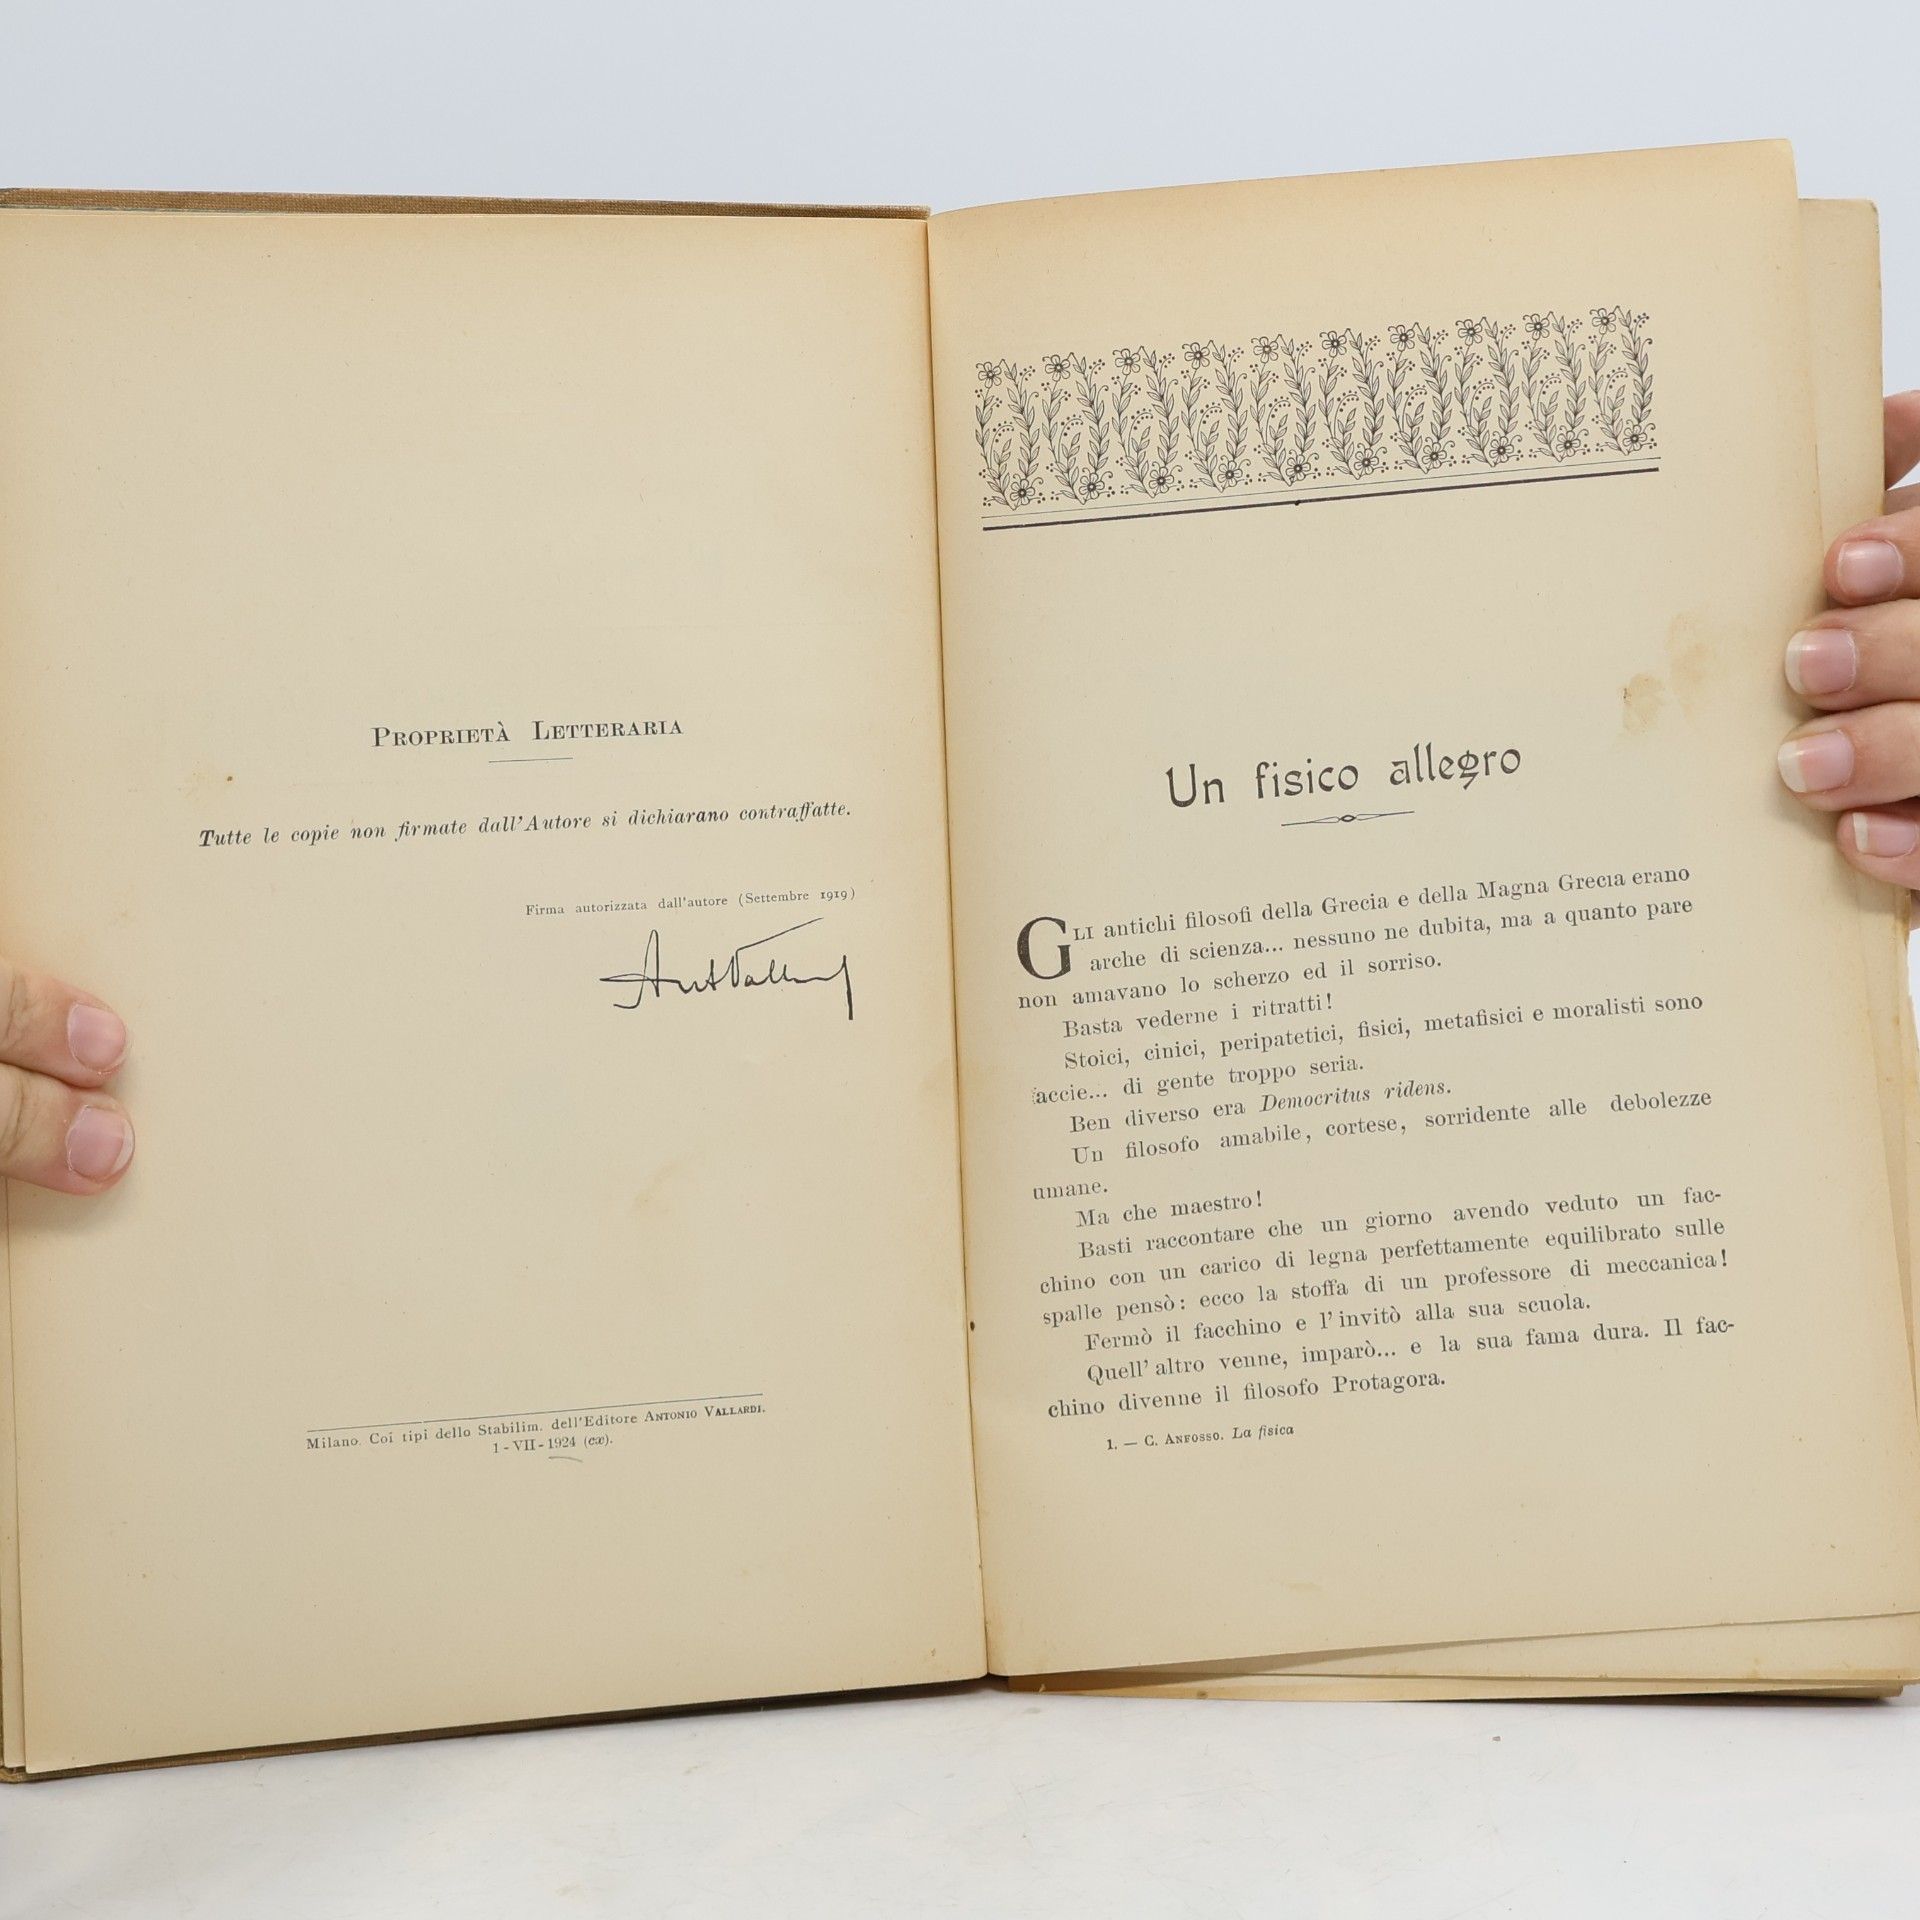 PROPRIETÀ LETTERARIA
Tutte le copie non firmate dall'Autore si dichiarano contraffatte.
Firma autorizzata dall'autore (Settembre 1919)
AntVallardi
Milano. Coi tipi dello Stabilim. dell'Editore ANTONIO VALLARDI.
1-VII-1924 (cx).
Un fisico allegro
GLI antichi filosofi della Grecia e della Magna Grecia erano
arche di scienza... nessuno ne dubita, ma a quanto pare
non amavano lo scherzo ed il sorriso.
Basta vederne i ritratti!
Stoici, cinici, peripatetici, fisici, metafisici e moralisti sono
faccie... di gente troppo seria.
Ben diverso era Democritus ridens.
Un filosofo amabile, cortese, sorridente alle debolezze
umane.
Ma che maestro!
Basti raccontare che un giorno avendo veduto un fac-
chino con un carico di legna perfettamente equilibrato sulle
spalle pensò: ecco la stoffa di un professore di meccanica!
Fermò il facchino e l'invitò alla sua scuola.
Quell'altro venne, imparò... e la sua fama dura. Il fac-
chino divenne il filosofo Protagora.
1. — C. ANFOSSO. La fisica